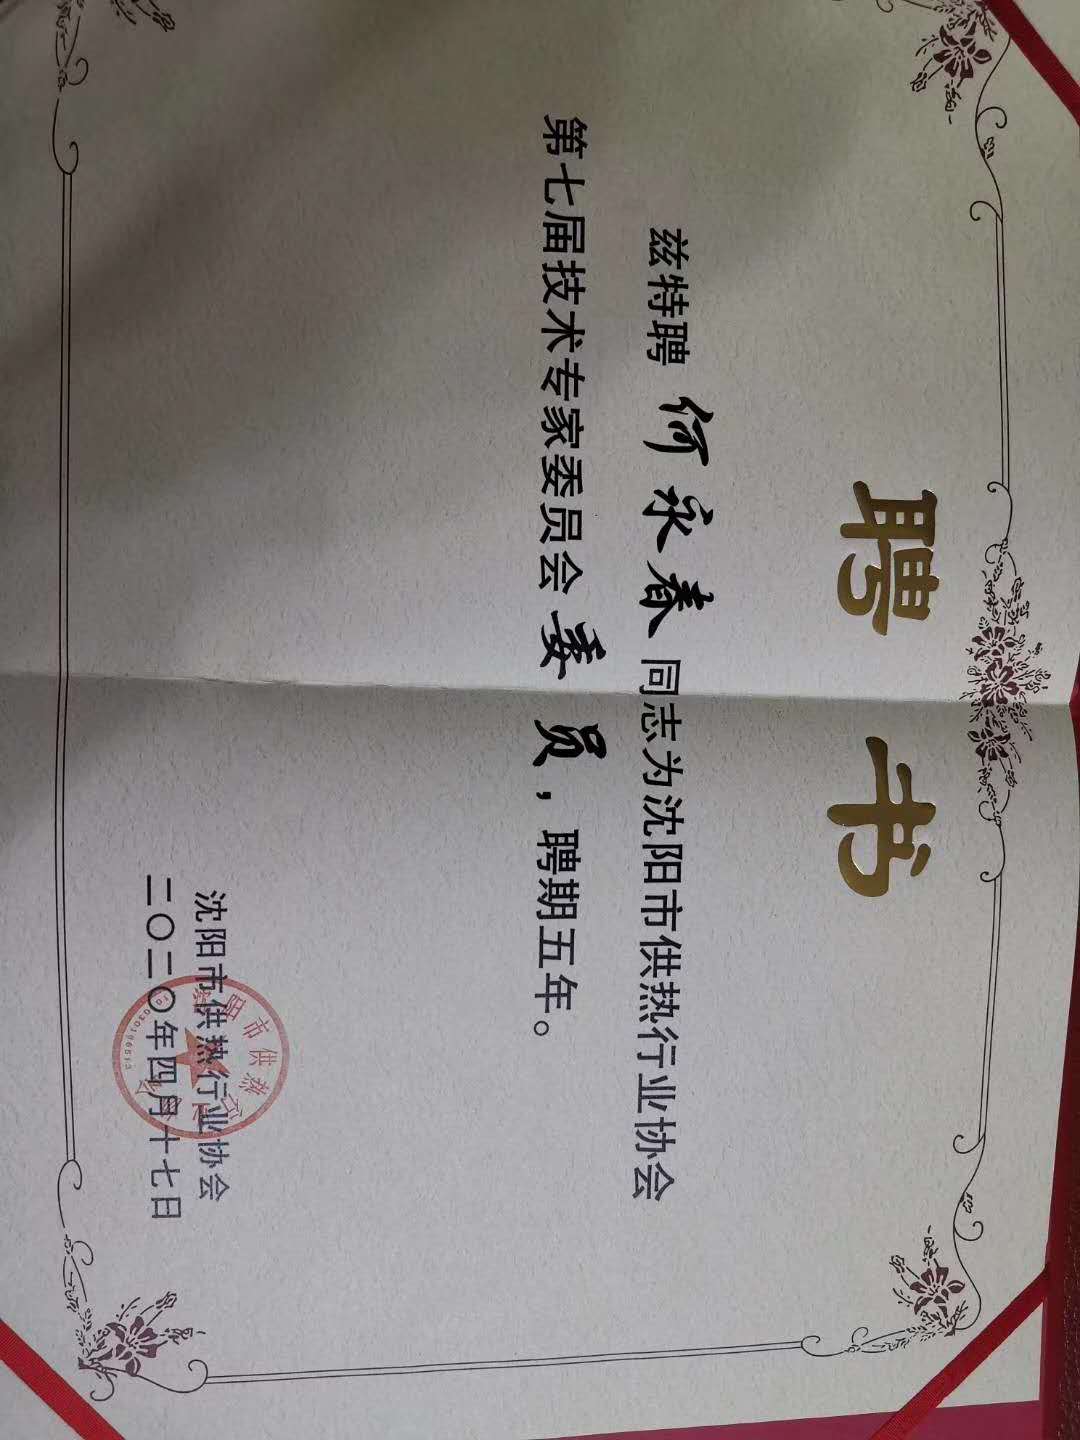 聘书
兹特聘 何永春 同志为沈阳市供热行业协会
第七届技术专家委员会 委员，聘期五年。
沈阳市供热行业协会
二〇二〇年四月十七日